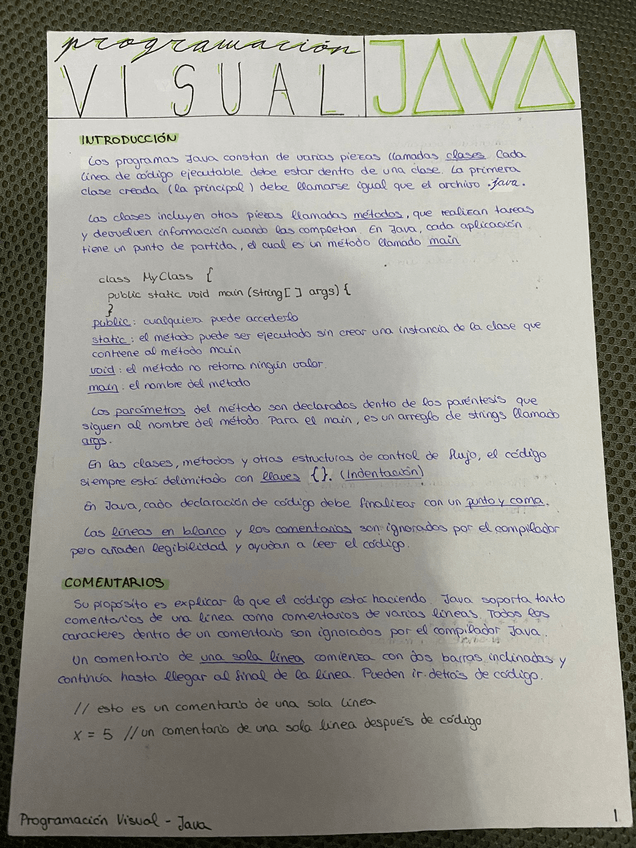 programación
VISUAL
JAVA
INTRODUCCIÓN
Los programas Java constan de varias piezas llamadas clases. Cada
línea de código ejecutable debe estar dentro de una clase. La primera
clase creada (la principal) debe llamarse igual que el archivo .java.
Las clases incluyen otras piezas llamadas métodos, que realizan tareas
y devuelven información cuando las completan. En Java, cada aplicación
tiene un punto de partida, el cual es un método llamado main
class MyClass {
public static void main (String[ ] args) {
}
public: cualquiera puede accederlo
static: el método puede ser ejecutado sin crear una instancia de la clase que
contiene al método main
void: el método no retorna ningún valor
main: el nombre del método
Los parámetros del método son declarados dentro de los paréntesis que
siguen al nombre del método Para el main, es un arreglo de strings llamado
args.
En las clases, métodos y otras estructuras de control de flujo, el código
siempre está delimitado con llaves {}. (Indentación)
En Java, cada declaración de código debe finalizar con un punto y coma.
Las líneas en blanco y los comentarios son ignorados por el compilador
pero añaden legibilidad y ayudan a leer el código.
COMENTARIOS
Su propósito es explicar lo que el código está haciendo. Java soporta tanto
comentarios de una línea como comentarios de varias líneas. Todos los
caracteres dentro de un comentario son ignorados por el compilador Java.
Un comentario de una sola línea comienza con dos barras inclinadas y
continúa hasta llegar al final de la línea. Pueden ir detrás de código.
// esto es un comentario de una sola línea
x = 5 //un comentario de una sola línea después de código
Programación Visual - Java
1